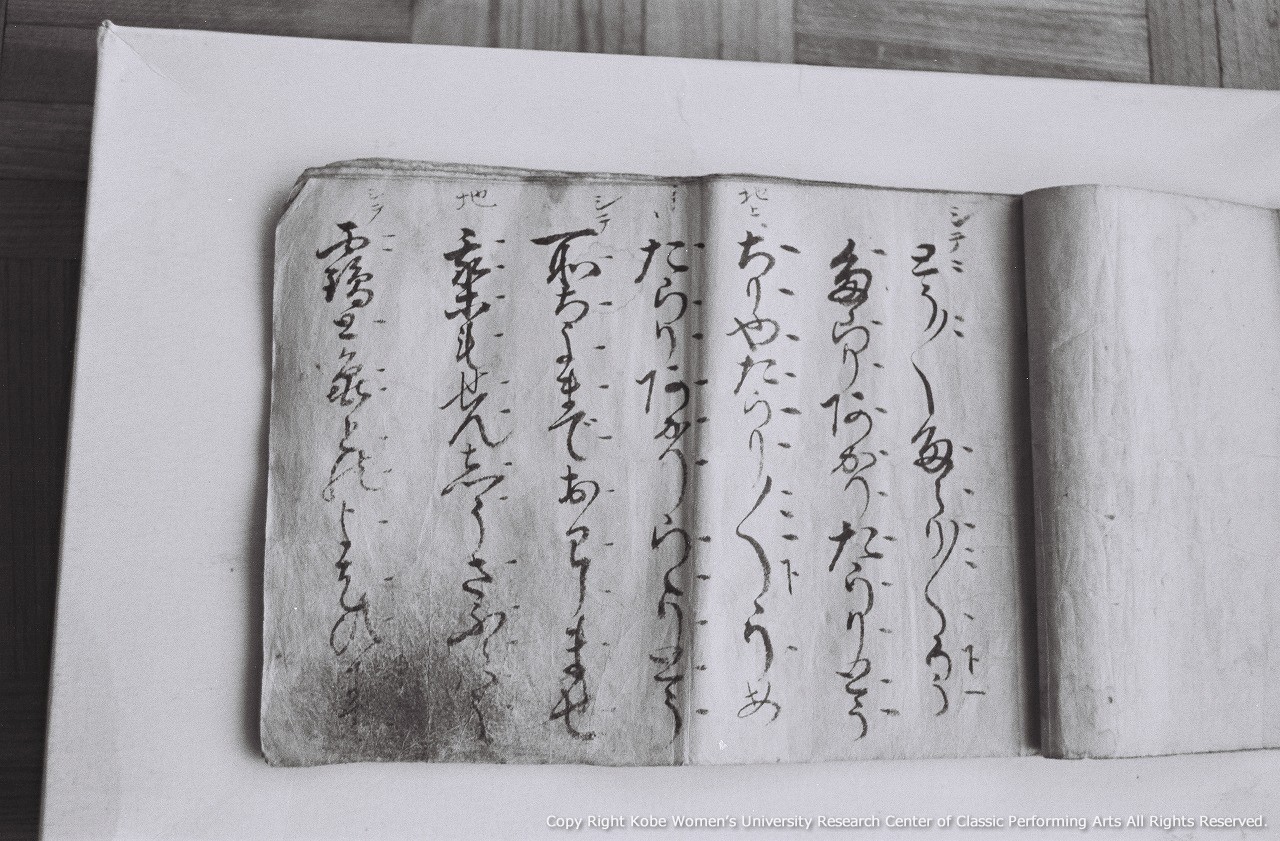 シテ とう〱たらり〱らう
たらりあがりたらりとう
地上 ちりやたらり〱
たらりあがりらゝりとう
シテ 所ちよまでおはしませ
地 我等もせんしうさふらふ
シテ 靏と亀とのよはひ
Copy Right Kobe Women's University Research Center of Classic Performing Arts All Rights Reserved.